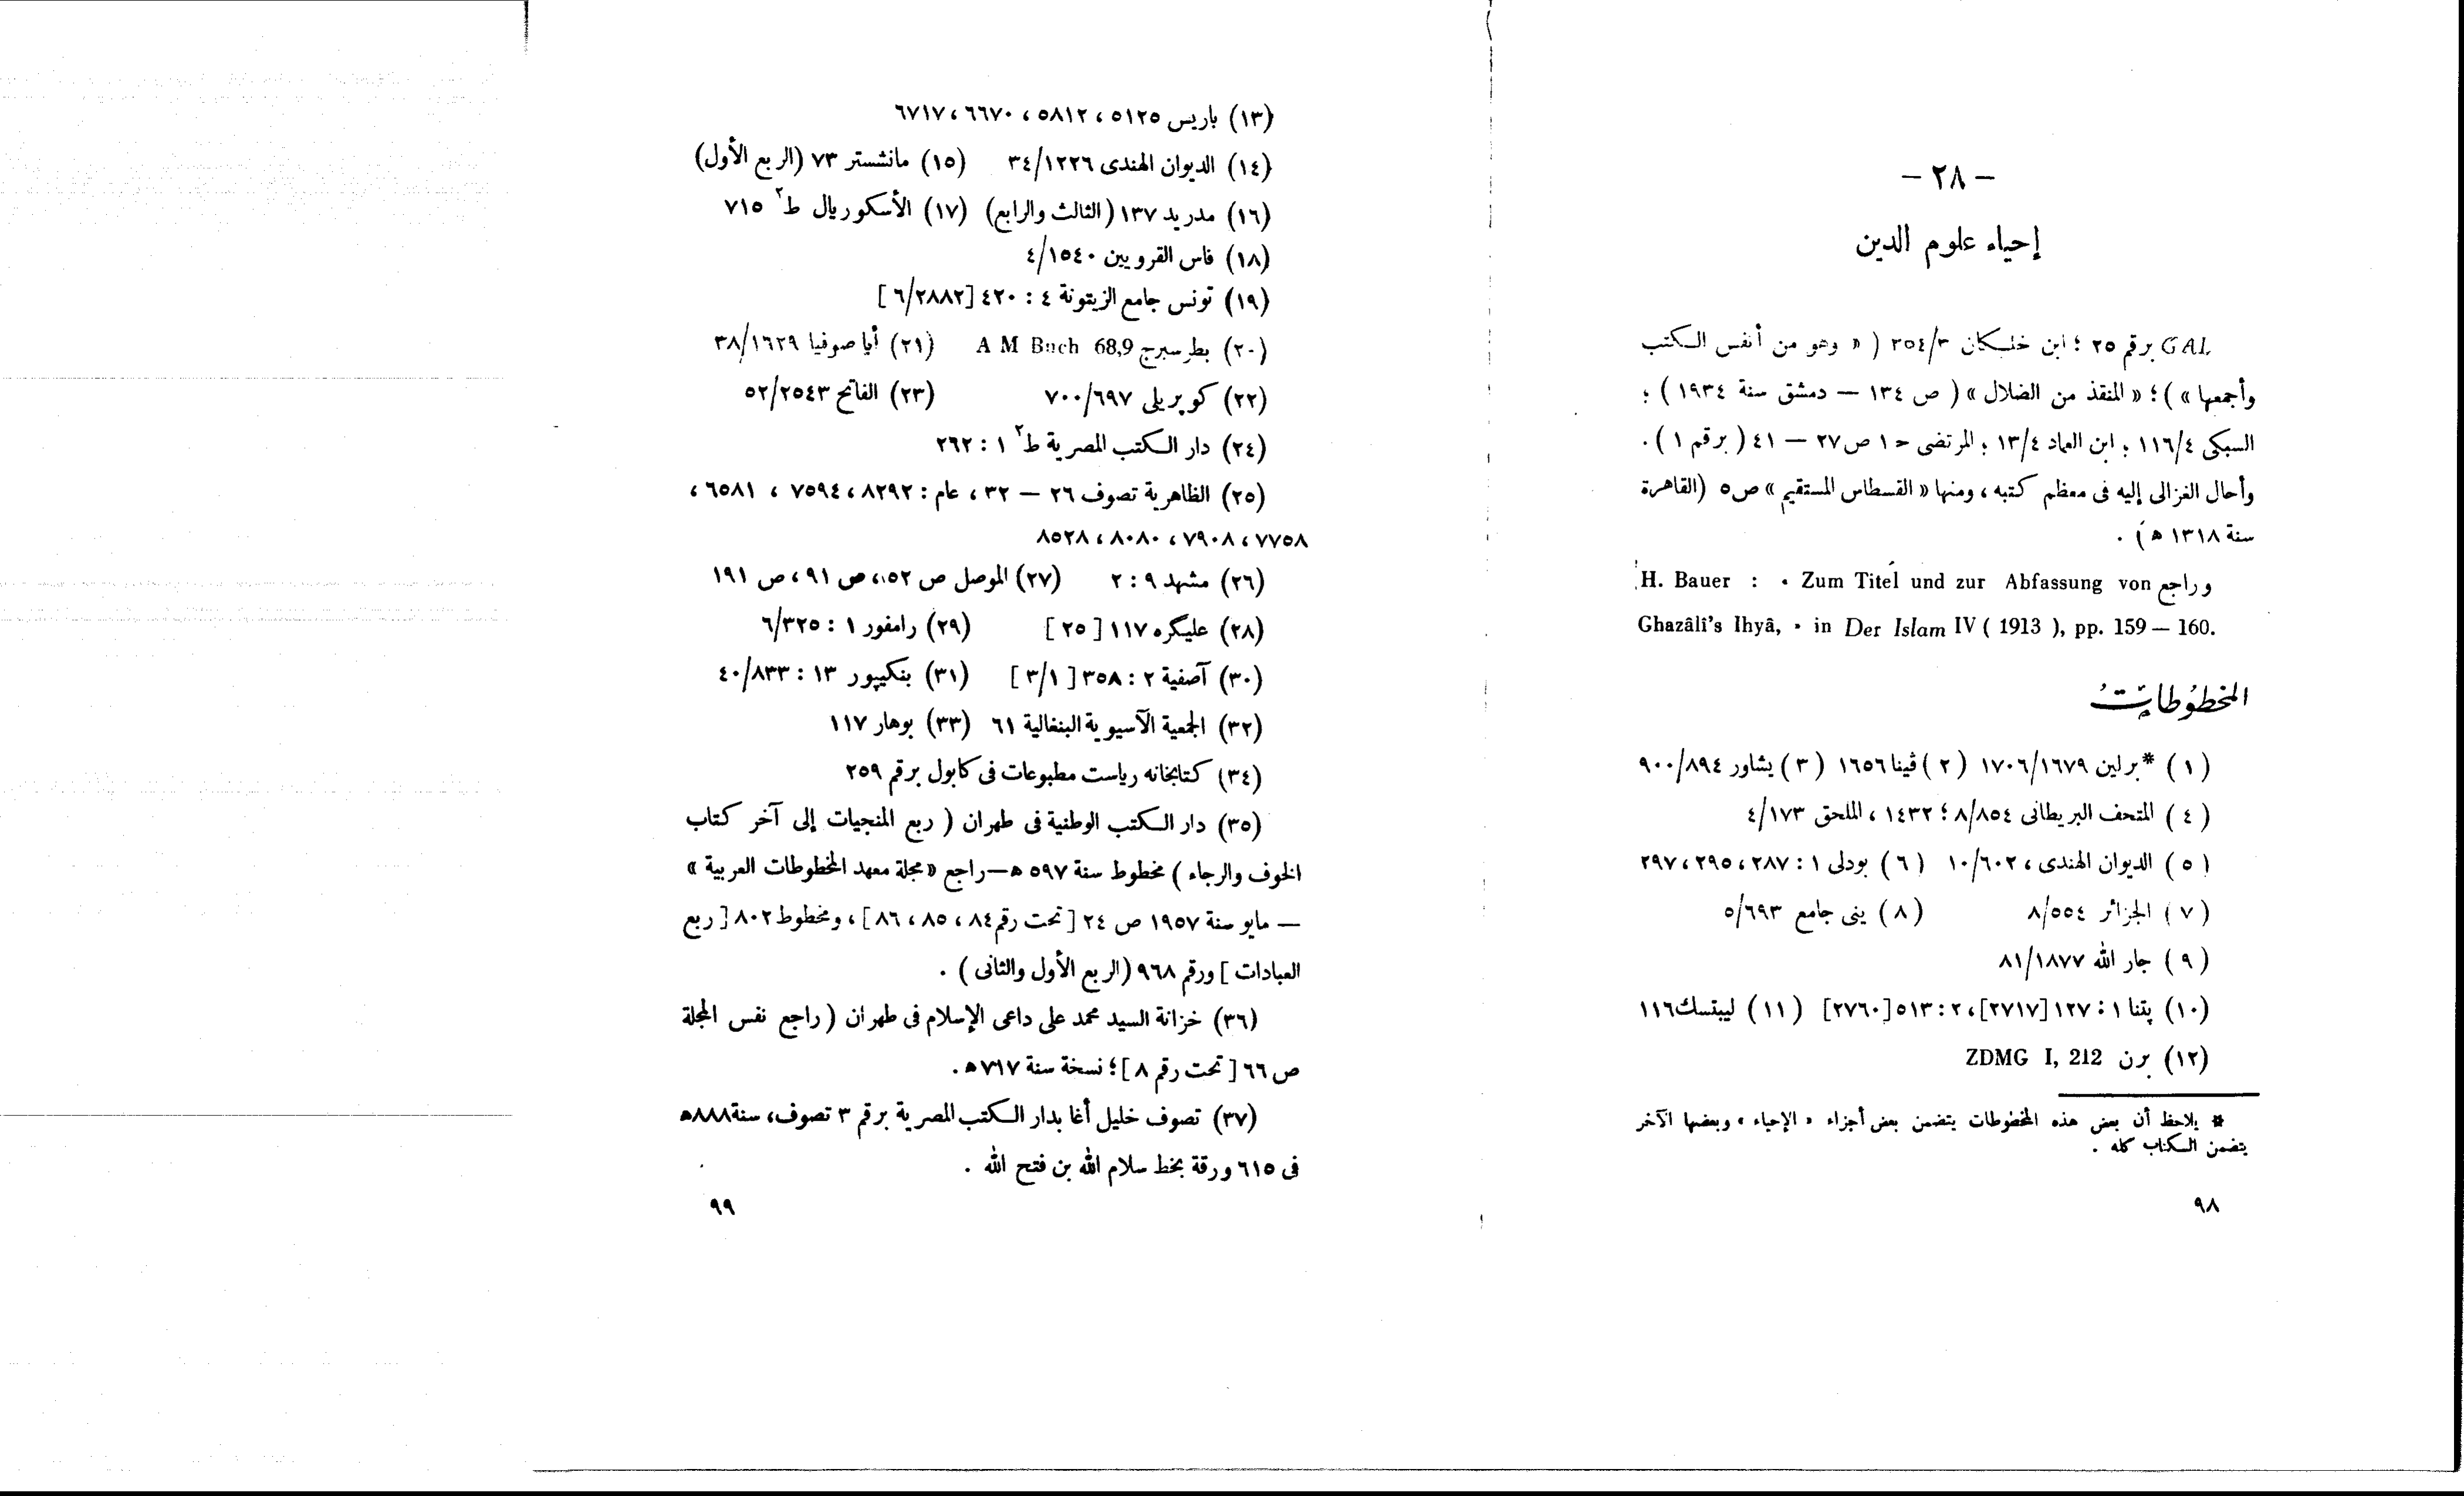 — ٢٨ —
إحياء علوم الدين
GAL برقم ٢٥ ؛ ابن خلـكان ٣٥٤/٣ ( « وهو من أنفس الـكتب
وأجمعها » ) ؛ « المنقذ من الضلال » ( ص ١٣٤ — دمشق سنة ١٩٣٤ ) ؛
السبكى ١١٦/٤ ؛ ابن العماد ١٣/٤ ؛ المرتضى حـ ١ ص ٢٧ — ٤١ ( برقم ١ ) .
وأحال الغزالى إليه فى معظم كتبه ، ومنها « القسطاس المستقيم » ص ٥ (القاهرة
سنة ١٣١٨ هـ) .
وراجع H. Bauer : • Zum Titel und zur Abfassung von
Ghazâlî's Ihyâ, • in Der Islam IV ( 1913 ), pp. 159 — 160.
المخطوطات
( ١ ) *برلين ١٧٠٦/١٦٧٩ ( ٢ ) ڤينا ١٦٥٦ ( ٣ ) پشاور ٩٠٠/٨٩٤
( ٤ ) المتحف البريطانى ٨/٨٥٤ ؛ ١٤٣٢ ، الملحق ٤/١٧٣
( ٥ ) الديوان الهندى ، ١٠/٦٠٢ ( ٦ ) بودلى ١ : ٢٨٧ ، ٢٩٥ ، ٢٩٧
( ٧ ) الجزائر ٨/٥٥٤ ( ٨ ) ينى جامع ٥/٦٩٣
( ٩ ) جار الله ٨١/١٨٧٧
(١٠) پتنا ١ : ١٢٧ [٢٧١٧] ، ٢ : ٥١٣ [٢٧٦٠] ( ١١ ) ليبتسك ١١٦
(١٢) برن ZDMG I, 212
* يلاحظ أن بعض هذه المخطوطات يتضمن بعض أجزاء « الإحياء » وبعضها الآخر
يتضمن الـكتاب كله .
٩٨
(١٣) باريس ٥١٢٥ ، ٥٨١٢ ، ٦٦٧٠ ، ٦٧١٧
(١٤) الديوان الهندى ٣٤/١٢٢٦ (١٥) مانشستر ٧٣ (الربع الأول)
(١٦) مدريد ١٣٧ (الثالث والرابع) (١٧) الأسكوريال ط٢ ٧١٥
(١٨) فاس القرويين ٤/١٥٤٠
(١٩) تونس جامع الزيتونة ٤ : ٤٢٠ [٦/٢٨٨٢]
(٢٠) بطرسبرج A M Buch 68,9 (٢١) أياصوفيا ٣٨/١٦٢٩
(٢٢) كوپريلى ٧٠٠/٦٩٧ (٢٣) الفاتح ٥٢/٢٥٤٣
(٢٤) دار الـكتب المصرية ط٢ ١ : ٢٦٢
(٢٥) الظاهرية تصوف ٢٦ — ٣٢ ، عام : ٨٢٩٢ ، ٧٥٩٤ ، ٦٥٨١ ،
٧٧٥٨ ، ٧٩٠٨ ، ٨٠٨٠ ، ٨٥٢٨
(٢٦) مشهد ٩ : ٢ (٢٧) الموصل ص ٥٢ ، ص ٩١ ، ص ١٩١
(٢٨) عليكره ١١٧ [ ٢٥ ] (٢٩) رامفور ١ : ٦/٣٢٥
(٣٠) آصفية ٢ : ٣٥٨ [ ٣/١ ] (٣١) بنكيپور ١٣ : ٤٠/٨٣٣
(٣٢) الجمعية الآسيوية البنغالية ٦١ (٣٣) بوهار ١١٧
(٣٤) كتابخانه رياست مطبوعات فى كابول برقم ٢٥٩
(٣٥) دار الـكتب الوطنية فى طهران ( ربع المنجيات إلى آخر كتاب
الخوف والرجاء ) مخطوط سنة ٥٩٧ هـ—راجع « مجلة معهد المخطوطات العربية »
— مايو سنة ١٩٥٧ ص ٢٤ [ تحت رقم ٨٤ ، ٨٥ ، ٨٦ ] ، ومخطوط ٨٠٢ [ ربع
العبادات ] ورقم ٩٦٨ (الربع الأول والثانى ) .
(٣٦) خزانة السيد محمد على داعى الإسلام فى طهران ( راجع نفس المجلة
ص ٦٦ [ تحت رقم ٨ ] ؛ نسخة سنة ٧١٧ هـ .
(٣٧) تصوف خليل أغا بدار الـكتب المصرية برقم ٣ تصوف ، سنة ٨٨٨ هـ
فى ٦١٥ ورقة بخط سلام الله بن فتح الله .
٩٩